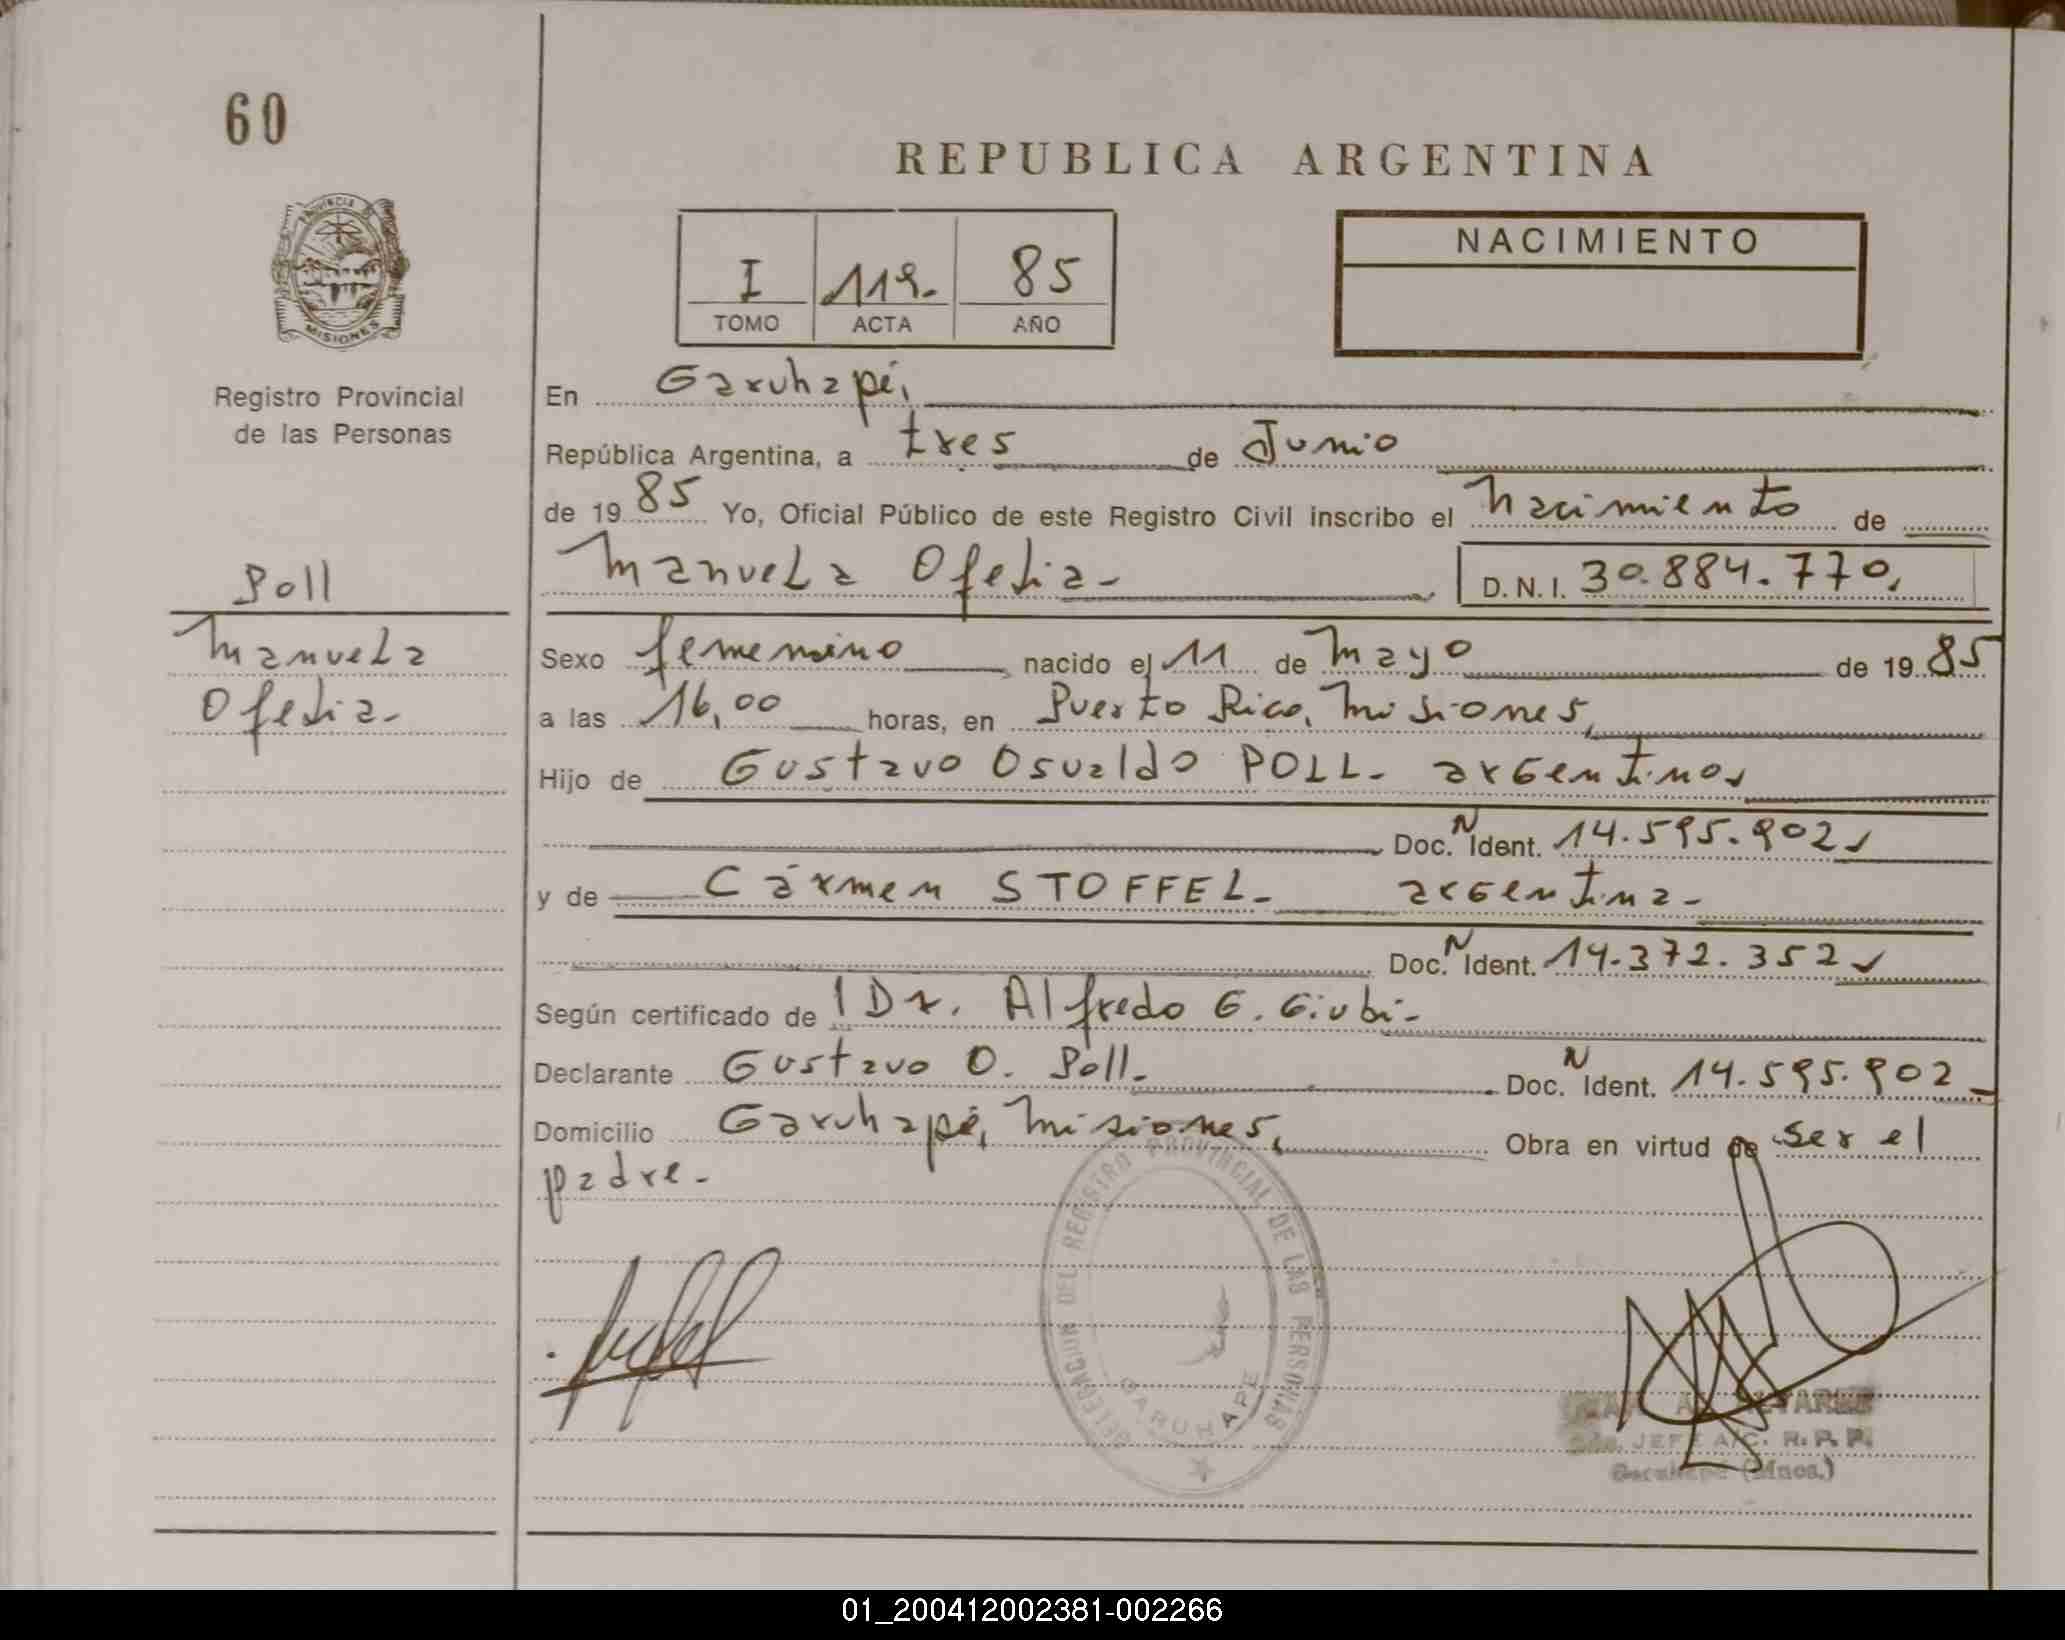 60
REPUBLICA ARGENTINA
PROVINCIA DE
MISIONES
I 119. 85
TOMO ACTA AÑO
NACIMIENTO
Registro Provincial
de las Personas
En Garuhapé,
República Argentina, a tres de Junio
de 1985 Yo, Oficial Público de este Registro Civil inscribo el nacimiento de
Manuela Ofelia- D.N.I. 30.884.770,
Poll
Manuela
Ofelia-
Sexo femenino nacido el 11 de Mayo de 1985
a las 16,00 horas, en Puerto Rico, Misiones,
Hijo de Gustavo Osvaldo POLL- argentino,
Doc. N Ident. 14.595.902
y de Cármen STOFFEL- argentina-
Doc. N Ident. 14.372.352
Según certificado del Dr. Alfredo G. Giubi-
Declarante Gustavo O. Poll- Doc. N Ident. 14.595.902-
Domicilio Garuhapé, Misiones, Obra en virtud de ser el
padre-
DELEGACION DEL REGISTRO PROVINCIAL DE LAS PERSONAS
GARUHAPE
JEFE A/C. R. P. P.
Garuhapé (Mnes.)
01_200412002381-002266